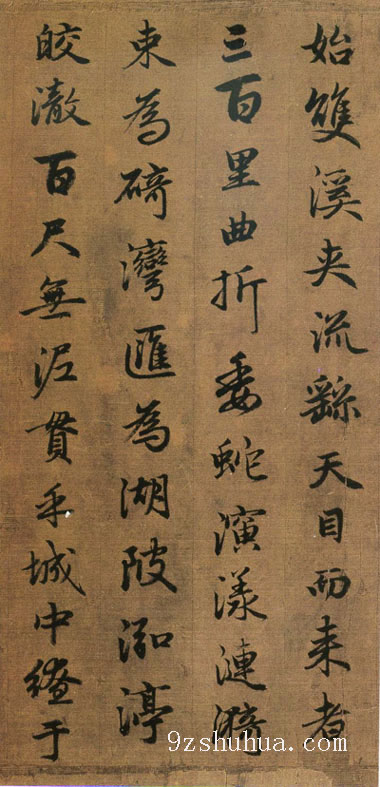 始雙溪夾流繇天目而来者
三百里曲折委蛇演漾漣漪
束為碕灣匯為湖陂泓渟
皎澈百尺無泥貫乎城中繚于
9zshuhua.com